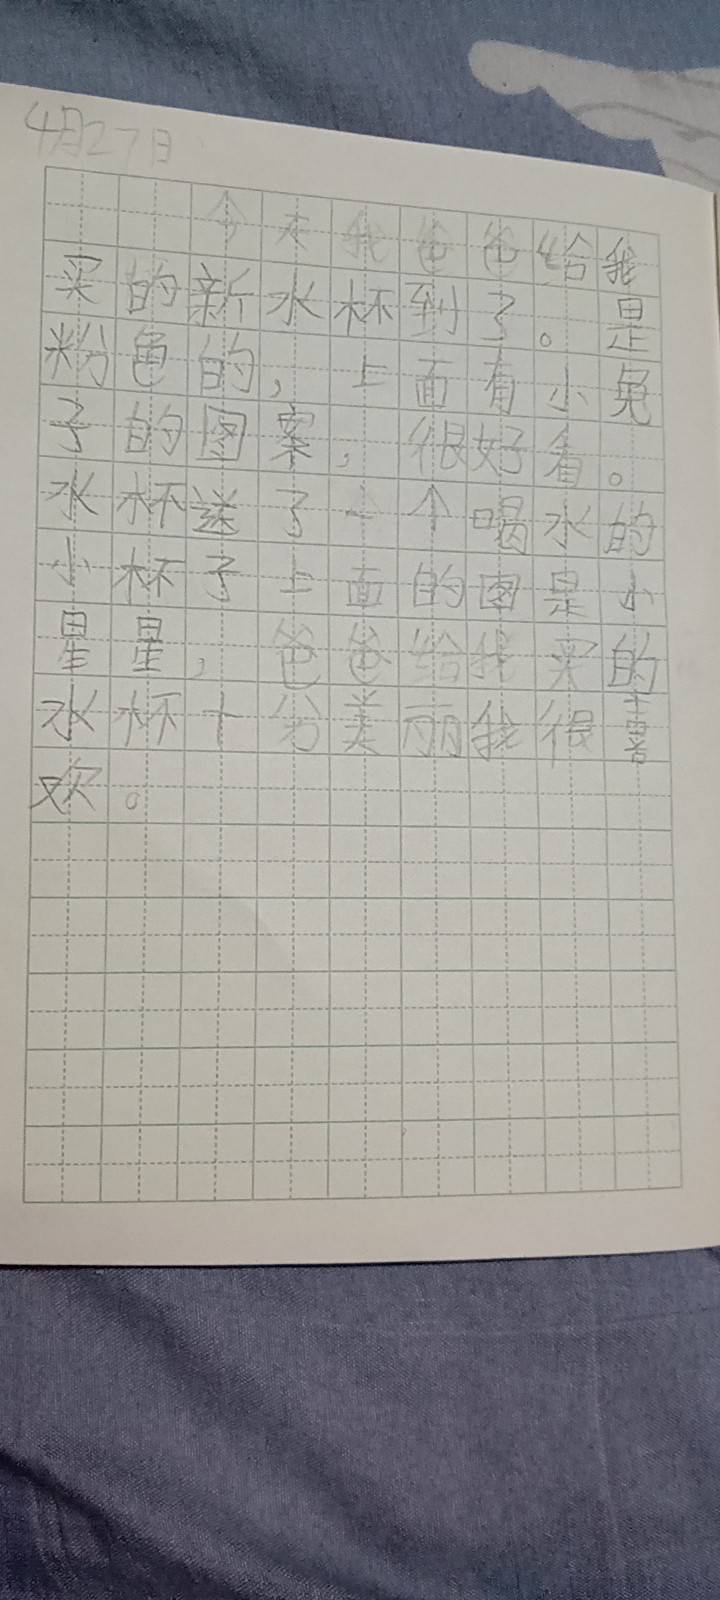 4月27日
今天我爸爸给我
买的新水杯到了。是
粉色的，上面有小兔
子的图案，很好看。
水杯送了一个喝水的
小杯子上面的图是小
星星，爸爸给我买的
水杯十分美丽我很喜
欢。